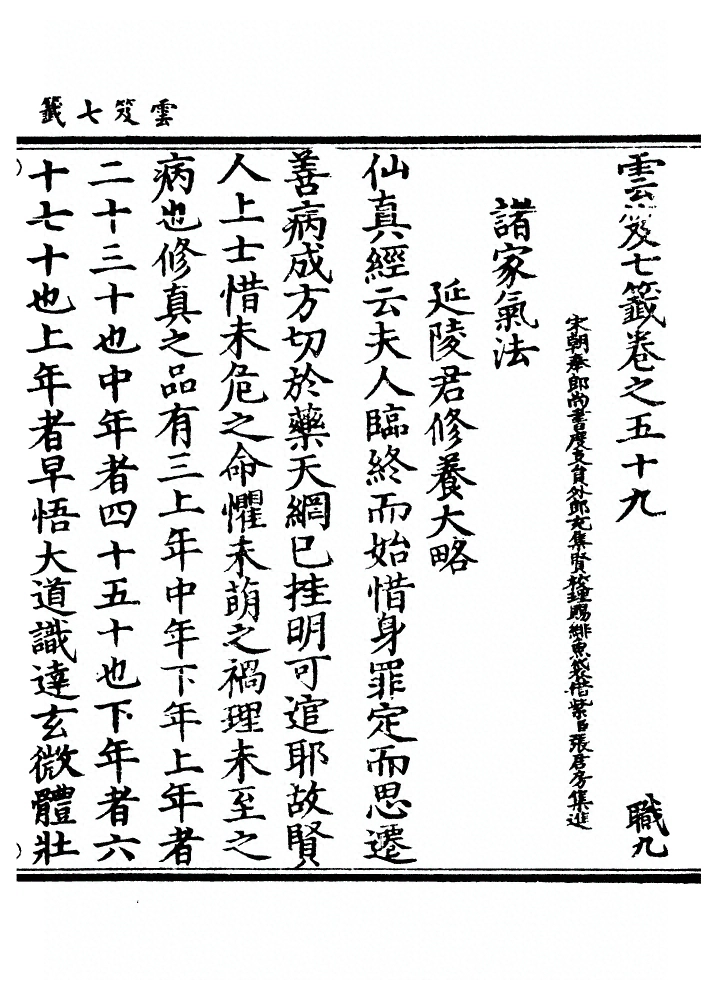 雲笈七籤
雲笈七籤卷之五十九
職九
宋朝奉郎尚書度支員外郎充集賢校理賜緋魚袋借紫臣張君房集進
諸家氣法
延陵君修養大略
仙真經云夫人臨終而始惜身罪定而思遷
善病成方切於藥天網已挂明可逭耶故賢
人上士惜未危之命懼未萌之禍理未至之
病也修真之品有三上年中年下年上年者
二十三十也中年者四十五十也下年者六
十七十也上年者早悟大道識達玄微體壯